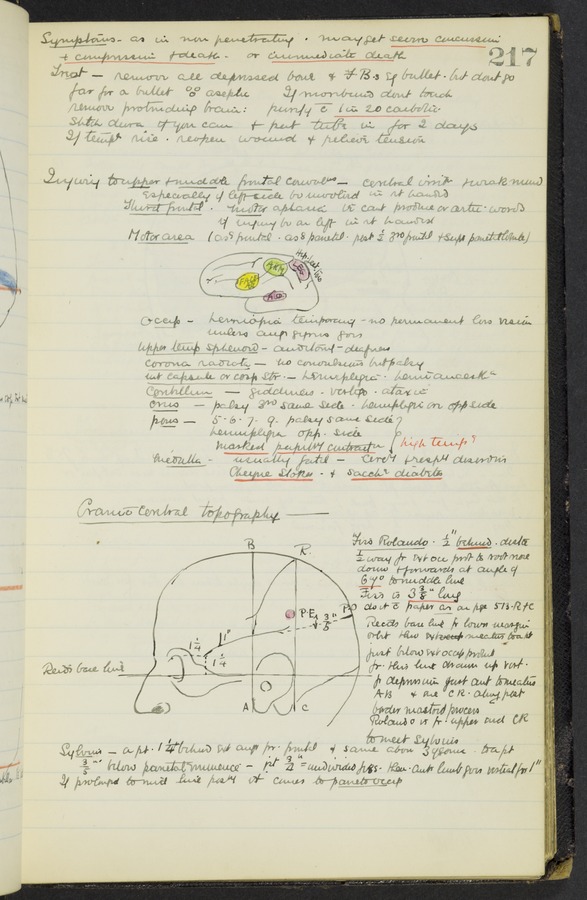 Symptoms - as in non penetrating. may get severe concussion
217
+ compression + death. or immediate death
Treat - remove all depressed bone & F.B.s eg bullet. but dont go
far for a bullet aseptic If moribund dont touch
remove protruding brain: purify c 1 in 20 carbolic
Stitch dura if you can + put tube in for 2 days
If tempt rise. reopen wound & relieve tension
Injury to upper + middle frontal convolns - central irrit + weak mind
especially if left side be involved in rt handed
Third frontal. motor aphasia ie cant produce or artic. words
if injury be on left in rt handed
Motor area (asc frontal. asc parietal. post 1/3 3rd frontal + supr parietal lobule)
FACE
ARM
LEG
Hip
Occip - hemiopia temporary - no permanent loss vision
unless ang gyrus gone
Upper temp sphenoid - auditory - deafness
corona radiata - no convulsions but palsy
int capsule or corp str - hemiplegia. hemianaesth
Cerebellum - giddiness. vertigo. ataxia
crus - palsy 3rd same side. hemiplegia on opp side
pons - 5. 6. 7. 9. palsy same side
hemiplegia opp. side
marked pupillry contraction
high temp
medulla - usually fatal - circy + respy disorders
Cheyne Stokes. + Sacchr diabetes
Cranio Cerebral topography
B
R.
P.E.
3/5"
PO
1"
1 1/4
1 1/4
Reids base line
A
C
Fiss Rolando. 1/2" behind. dista
1/2 way fr ext occ prot to root nose
down + forwards at angle of
67° to middle line
Fiss is 3 3/8" long
do it c paper as on pge 573. R+C
Reids base line fr lower margin
orbit thro meatus to a pt
just below ext occip protub
fr. this line draw up vert.
fr depression just ant to meatus
AB + one CR. along post
border mastoid process
Rolando is fr. upper end CR
to meet Sylvius
Sylvius - a pt. 1 1/4 behind ext ang pr. frontal + same above zygoma. to a pt
3/5" below parietal eminence - 1st 3/4" = undivided fiss. then. ant limb goes vertical for 1"
If prolonged to mid line post it comes to parieto occip